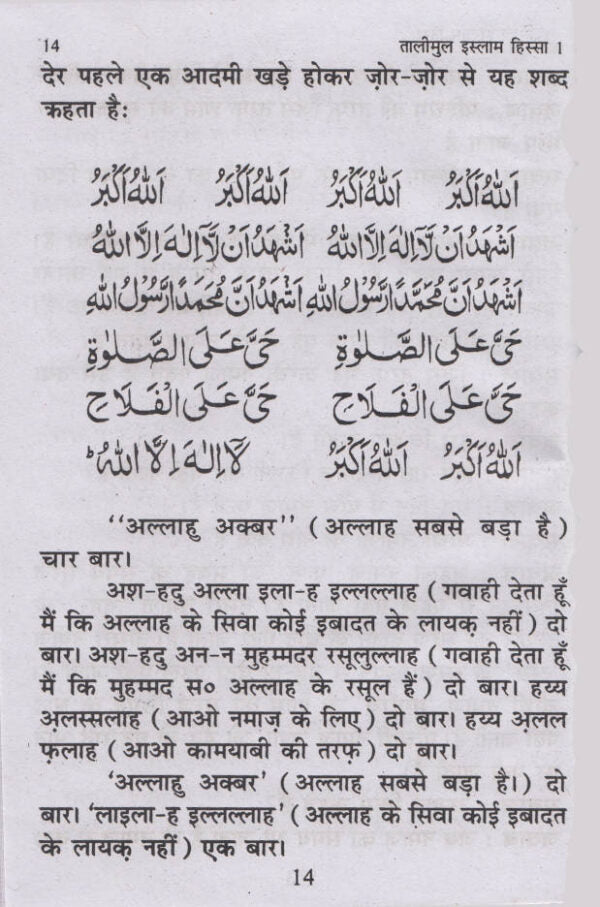 14 तालीमुल इस्लाम हिस्सा 1
देर पहले एक आदमी खड़े होकर ज़ोर-ज़ोर से यह शब्द
क्रहता है:
اَللّٰهُ اَكْبَرُ اَللّٰهُ اَكْبَرُ اَللّٰهُ اَكْبَرُ اَللّٰهُ اَكْبَرُ
اَشْهَدُ اَنْ لَّآ اِلٰهَ اِلَّا اللّٰهُ اَشْهَدُ اَنْ لَّآ اِلٰهَ اِلَّا اللّٰهُ
اَشْهَدُ اَنَّ مُحَمَّدًا رَّسُوْلُ اللّٰهِ اَشْهَدُ اَنَّ مُحَمَّدًا رَّسُوْلُ اللّٰهِ
حَیَّ عَلَی الصَّلٰوةِ حَیَّ عَلَی الصَّلٰوةِ
حَیَّ عَلَی الْفَلَاحِ حَیَّ عَلَی الْفَلَاحِ
اَللّٰهُ اَكْبَرُ اَللّٰهُ اَكْبَرُ لَآ اِلٰهَ اِلَّا اللّٰهُ ؕ
‘‘अल्लाहु अक्बर’’ ( अल्लाह सबसे बड़ा है )
चार बार।
अश-हदु अल्ला इला-ह इल्लल्लाह ( गवाही देता हूँ
मैं कि अल्लाह के सिवा कोई इबादत के लायक़ नहीं ) दो
बार। अश-हदु अन-न मुहम्मदर रसूलुल्लाह ( गवाही देता हूँ
मैं कि मुहम्मद स० अल्लाह के रसूल हैं ) दो बार। हय्य
अ़लस्सलाह ( आओ नमाज़ के लिए ) दो बार। हय्य अ़लल
फ़लाह ( आओ कामयाबी की तरफ़ ) दो बार।
‘अल्लाहु अक्बर’ ( अल्लाह सबसे बड़ा है। ) दो
बार। ‘लाइला-ह इल्लल्लाह’ ( अल्लाह के सिवा कोई इबादत
के लायक़ नहीं ) एक बार।
14